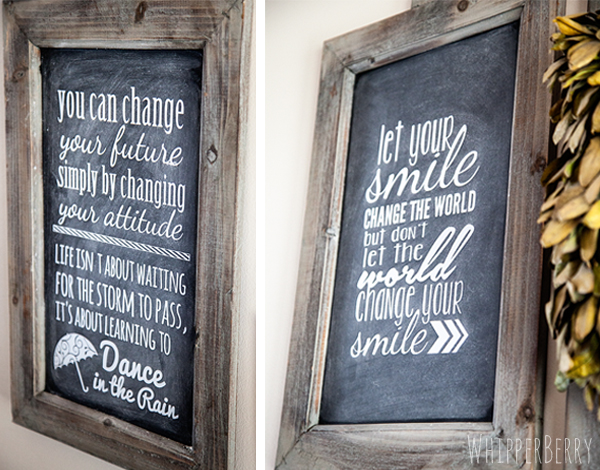 you can change
your future
simply by changing
your attitude
LIFE ISN'T ABOUT WAITING
FOR THE STORM TO PASS,
IT'S ABOUT LEARNING TO
Dance
in the Rain
let your
smile
CHANGE THE WORLD
but don't
let the
world
change your
smile
WHIPPERBERRY